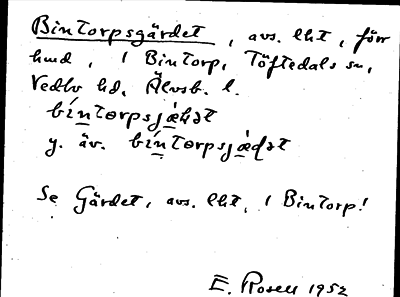 Bintorpsgärdet, avs. lht, förr
hmd, 1 Bintorp, Töftedals sn,
Vedbo hd, Älvsb. l.
bíntorpsjæ̀ḷət
y. äv. bíntorpsjæ̀ḍət
Se Gärdet, avs. lht, 1 Bintorp!
E. Rosell 1952